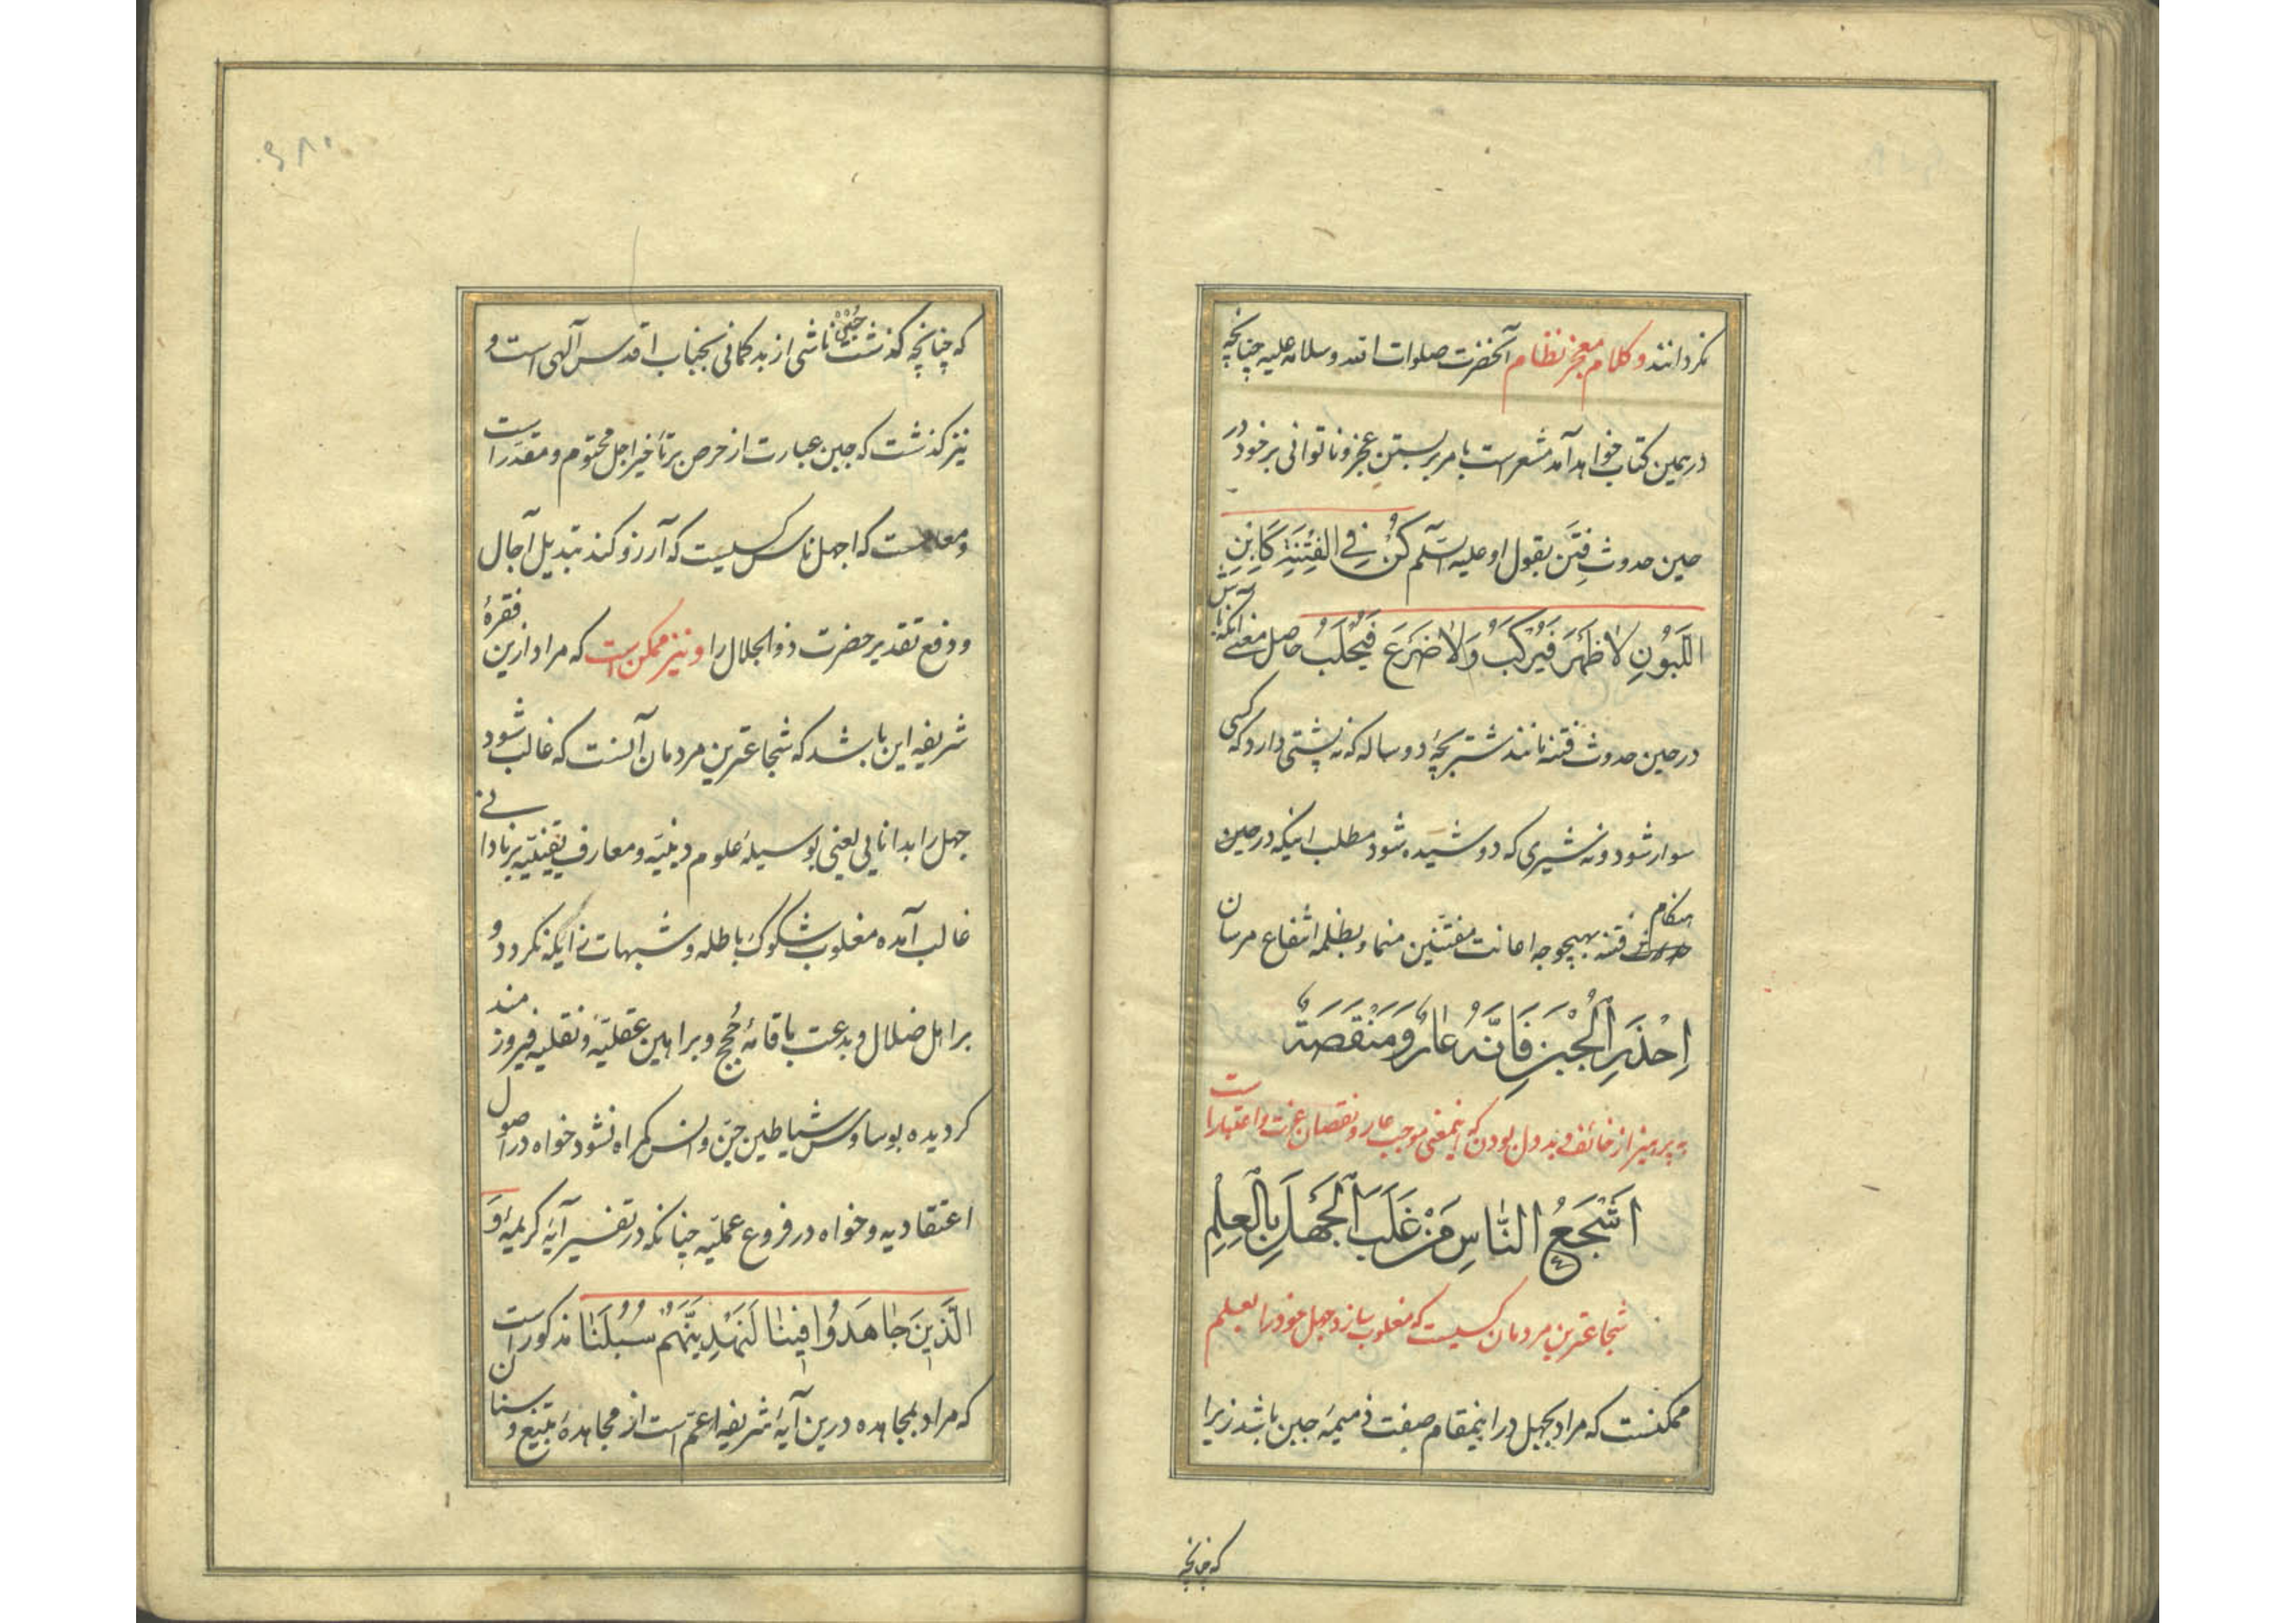 نکردانند و کلام معجز نظام آنحضرت صلوات الله و سلامه علیه چنانچه
درهمین کتاب خواهد آمد مشعر است بامر بر بستن عجز و ناتوانی بر خود در
حین حدوث فتن بقول او علیه السلم کُنْ فِي الفِتْنَةِ کَابْنِ
اللَّبُونِ لاٰ ظَهْرَ فَيُرْکَبُ وَلاٰ ضَرْعَ فَيُحْلَبُ حاصل معنی آنکه باش
در حین حدوث فتنه مانند شتر بچۀ دو ساله که نه پشتی دارد که کسی
سوار شود و نه شیری که دوشیده شود مطلب اینکه در حین
هنکام فتنه بهیچوجه اعانت مفتنین منما و بظلمه انتفاع مرسان
اِحْذَرِ الْجُبْنَ فَاِنَّهُ عٰارٌ وَمَنْقَصَةٌ
بپرهیز از خائف و بد دل بودن که اینمعنی موجب عار و نقصان عزت و اعتبار است
اَشْجَعُ النّٰاسِ مَنْ غَلَبَ الْجَهْلَ بِالْعِلْمِ
شجاعترین مردمان کسیست که مغلوب سازد جهل خود را بعلم
ممکنست که مراد بجهل در اینمقام صفت ذمیمۀ جبن باشد زیرا
که چنانچه
که چنانچه کذشت جبن ناشی از بد کمانی بجناب اقدس آلهی است و
نیز کذشت که جبن عبارت از حرص بر تأخیر اجل محتوم و مقدر است
و معلومست که اجهل ناس کسیست که آرزو کند تبدیل آجال
و دفع تقدیر حضرت ذو الجلال را و نیز ممکن است که مراد ازین فقرۀ
شریفه این باشد که شجاعترین مردمان آنست که غالب شود
جهل را بدانایی یعنی بوسیلۀ علوم دینیّه و معارف یقینیّه بر نادانی
غالب آمده مغلوب شکوک باطله و شبهات زایکه نکردد و
بر اهل ضلال و بدعت باقامۀ حُجج و براهین عقلیّه و نقلیه فیروزمند
کردیده بوساوس شیاطین جنّ و انس کمراه نشود خواه در اصول
اعتقادیه و خواه در فروع عملیّه چنانکه در تفسیر آیۀ کریمۀ وَ
الَّذینَ جٰاهَدُوا فینٰا لَنَهْدِیَنَّهُمْ سُبُلَنٰا مذکور است
که مراد بمجاهده درین آیۀ شریفه اعمّ است از مجاهدۀ بتیغ و سنان